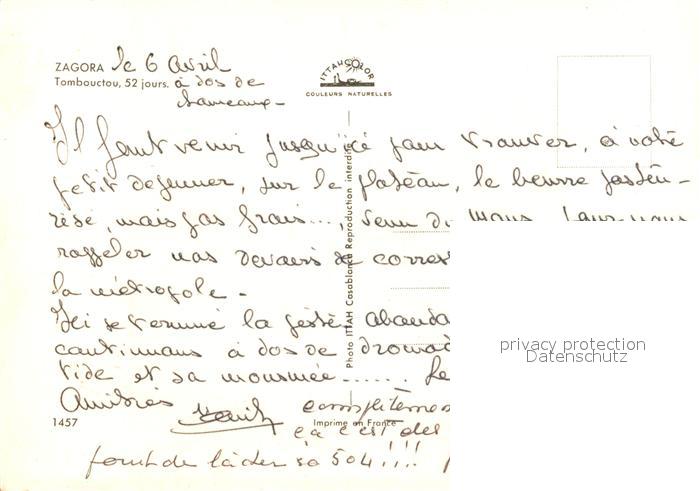 ZAGORA le 6 Avril
Tombouctou, 52 jours. à dos de
chameaux -
ITTAHCOLOR
COULEURS NATURELLES
Il faut venir jusqu'ici pour trouver, à votre
petit dejeuner, sur le plateau, le beurre pasteu-
risé, mais pas frais..., venu du mans, pour nous
rappeler nos devoirs de corres
la métropole -
Ici se termine la piste, abando
continuons à dos de dromad
et sa mousmée......
Amitiés
complétemen
ça c'est des
1457
Imprimé en France
Photo JITTAH Casablanca Reproduction interdite
de lâcher sa 504 !!!
privacy protection
Datenschutz